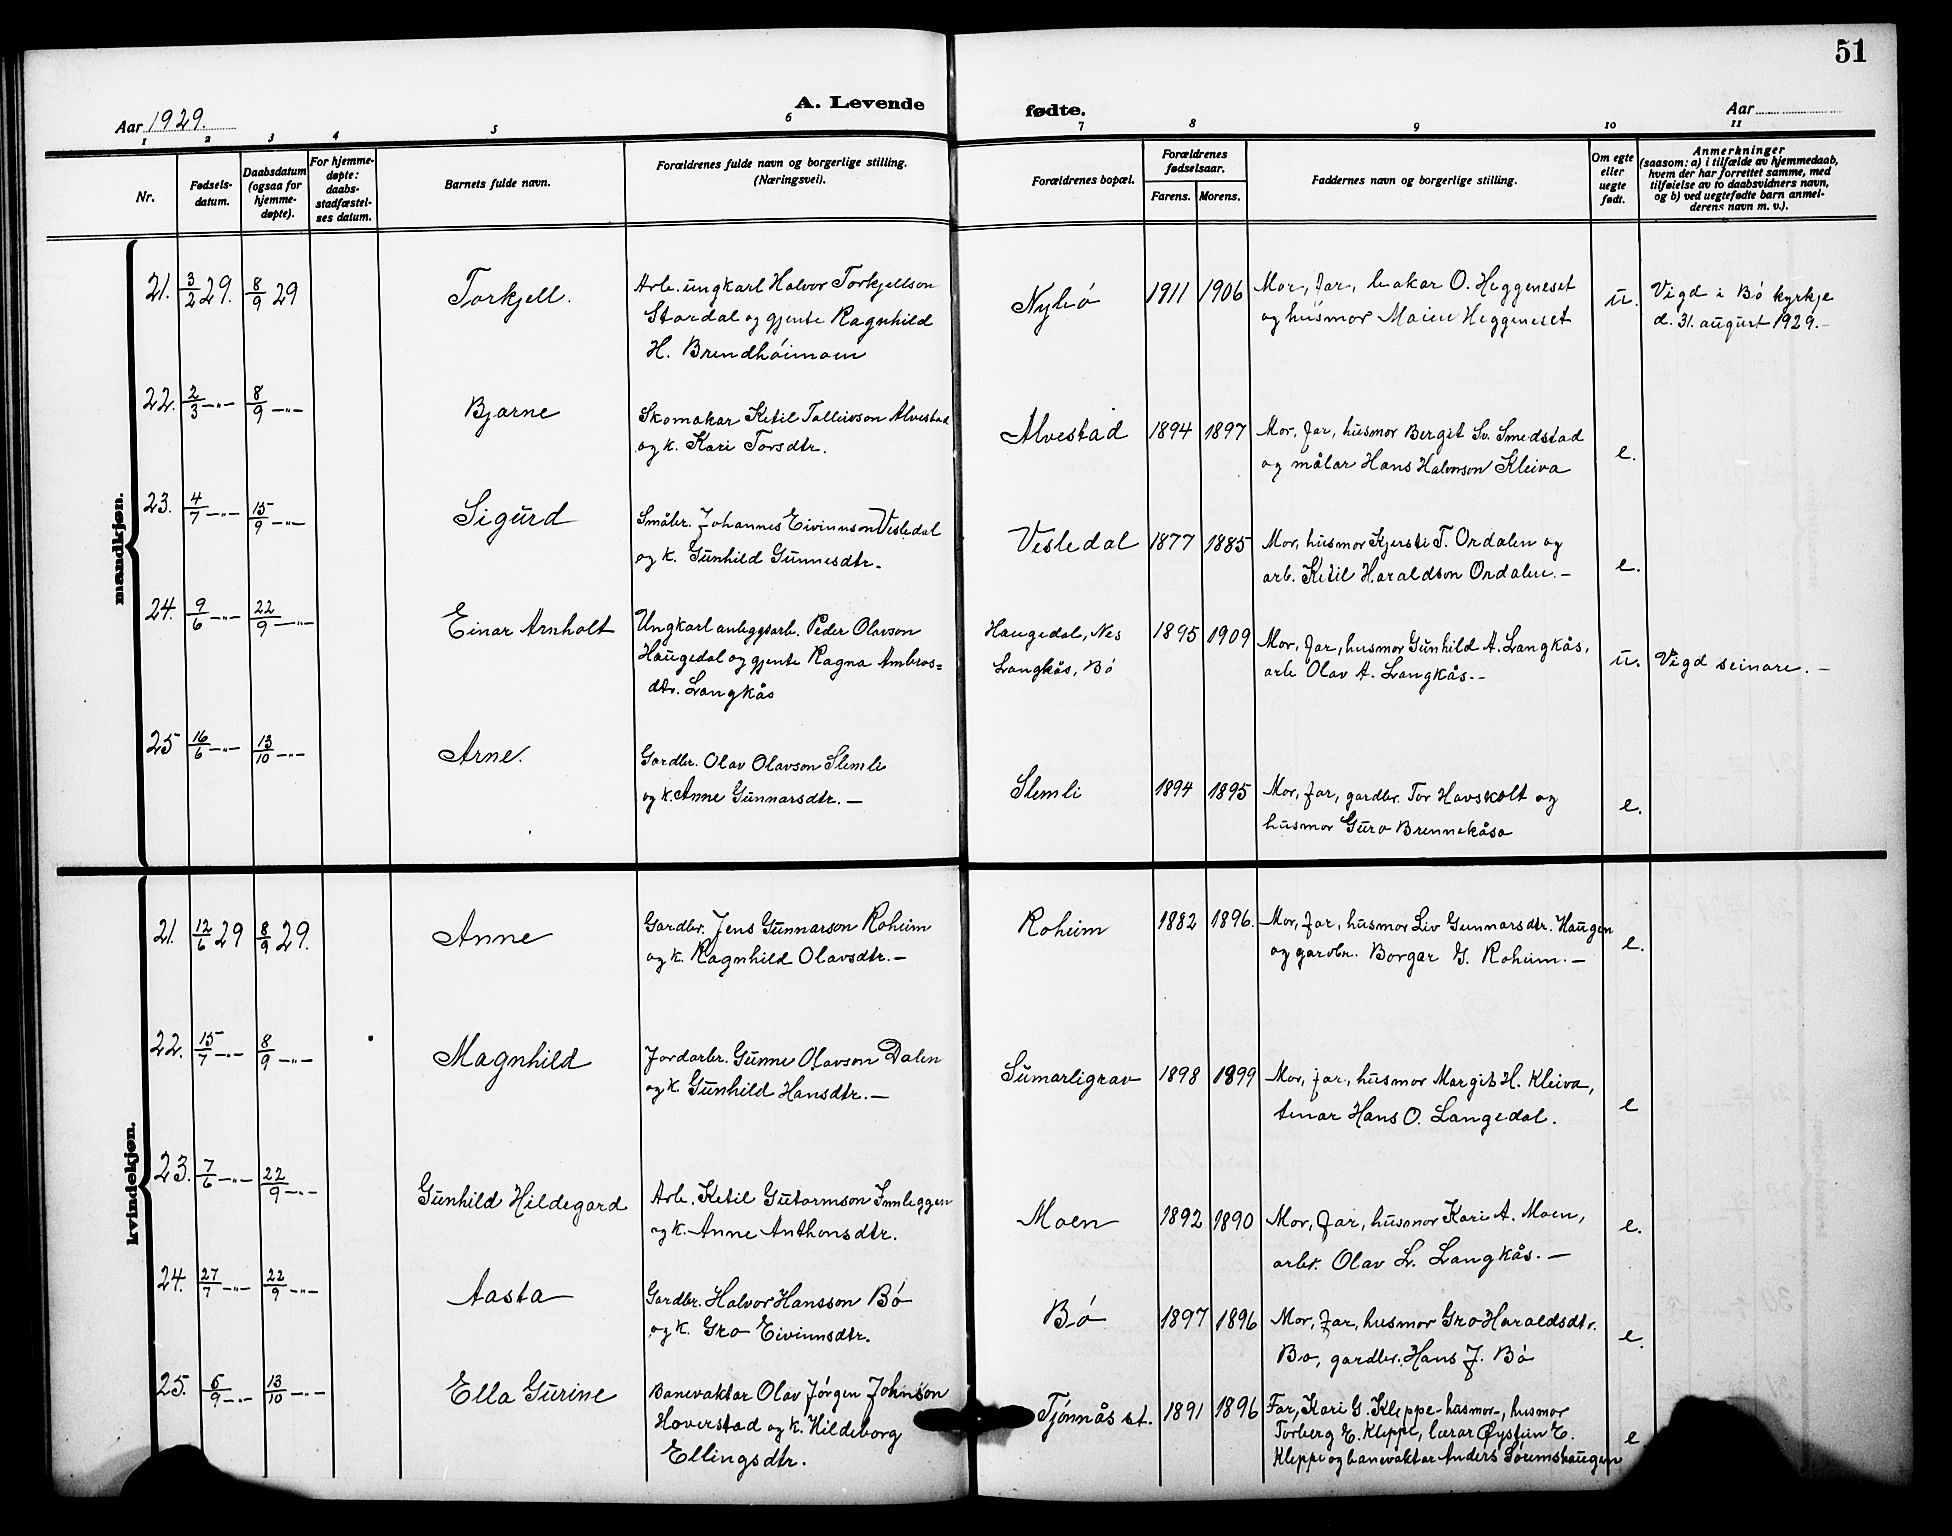 51
A. Levende fødte.
Aar 1929.
Aar
1 2 3 4 5 6 7 8 9 10 11
Nr.
Fødsels-
datum.
Daabsdatum
(ogsaa for
hjemme-
døpte).
For hjemme-
døpte:
daabs-
stadfæstel-
ses datum.
Barnets fulde navn.
Forældrenes fulde navn og borgerlige stilling.
(Næringsvei).
Forældrenes bopæl.
Forældrenes
fødselsaar.
Farens. Morens.
Faddernes navn og borgerlige stilling.
Om egte
eller
uegte
født.
Anmerkninger
(saasom: a) i tilfælde av hjemmedaab,
hvem der har forrettet samme, med
tilføielse av to daabsvidners navn,
og b) ved uegtefødte barn anmel-
derens navn m. v.).
mandkjøn.
21. 3/2 29. 8/9 29 Torkjell.
Arb. ungkarl Halvor Torkjellson
Stardal og gjente Ragnhild
H. Brendhöimoen
Nybö 1911 1906
Mor, far, bakar O. Heggeneset
og husmor Maien Heggeneset
u.
Vigd i Bö kyrkje
d. 31. august 1929.-
22. 2/3 -"- 8/9 -"- Bjarne
Skomakar Ketil Talleivson Alvestad
og k. Kari Torsdtr.
Alvestad 1894 1897
Mor, far, husmor Bergit Sv. Smedstad
og målar Hans Halvorson Kleiva
e.
23. 4/7 -"- 15/9 -"- Sigurd
Småbr. Johannes Eivinnson Vesledal
og k. Gunhild Gunnesdtr.
Vesledal 1877 1885
Mor, husmor Kjersti T. Ordalen og
arb. Ketil Haraldson Ordalen.-
e.
24. 9/6 -"- 22/9 -"- Einar Arnholt
Ungkarl anleggsarb. Peder Olavson
Haugedal og gjente Ragna Ambros=
dtr. Langkås
Haugedal, Nes
Langkås, Bö
1895 1909
Mor, far, husmor Gunhild A. Langkås,
arb Olav A. Langkås.-
u. Vigd seinare. -
25 16/6 -"- 13/10 -"- Arne.
Gardbr. Olav Olavson Slemli
og k. Anne Gunnarsdtr. -
Slemli 1894 1895
Mor, far, gardbr. Tor Havskolt og
husmor Guro Brennekåsa
e.
kvindekjøn.
21. 12/6 29 8/9 29. Anne
Gardbr. Jens Gunnarson Roheim
og k. Ragnhild Olavsdtr. -
Roheim 1882 1896.
Mor, far, husmor Liv Gunnarsdtr. Haugen
og gardbr. Borgar G. Roheim. -
e.
22. 15/7 -"- 8/9 -"- Magnhild
Jordarbr. Gunne Olavson Dalen
og k. Gunhild Hansdtr. -
Sumarligrav 1898 1899
Mor, far, husmor Margit H. Kleiva,
tenar Hans O. Langedal.
e
23. 7/6 -"- 22/9 -"- Gunhild Hildegard
Arb. Ketil Gutormson Innleggen
og k. Anne Anthonsdtr.
Moen 1892 1890
Mor, far, husmor Kari A. Moen,
arbr. Olav L. Langkås. -
e.
24. 27/7 -"- 22/9 -"- Aasta
Gardbr. Halvor Hansson Bö
og k. Gro Eivinnsdtr.
Bö 1897 1896
Mor, far, husmor Gro Haraldsdtr.
Bö, gardbr. Hans J. Bö
e.
25. 6/9 -"- 13/10 -"- Ella Gurine
Banevaktar Olav Jörgen Johnson
Haverstad og k. Hildeborg
Ellingsdtr.
Tjönnås st. 1891 1896
Far, Kari G. Kleppe -husmor-, husmor
Torberg E. Kleppe, lærar Øystein E.
Kleppe og banevaktar Anders Söremshaugen
e.